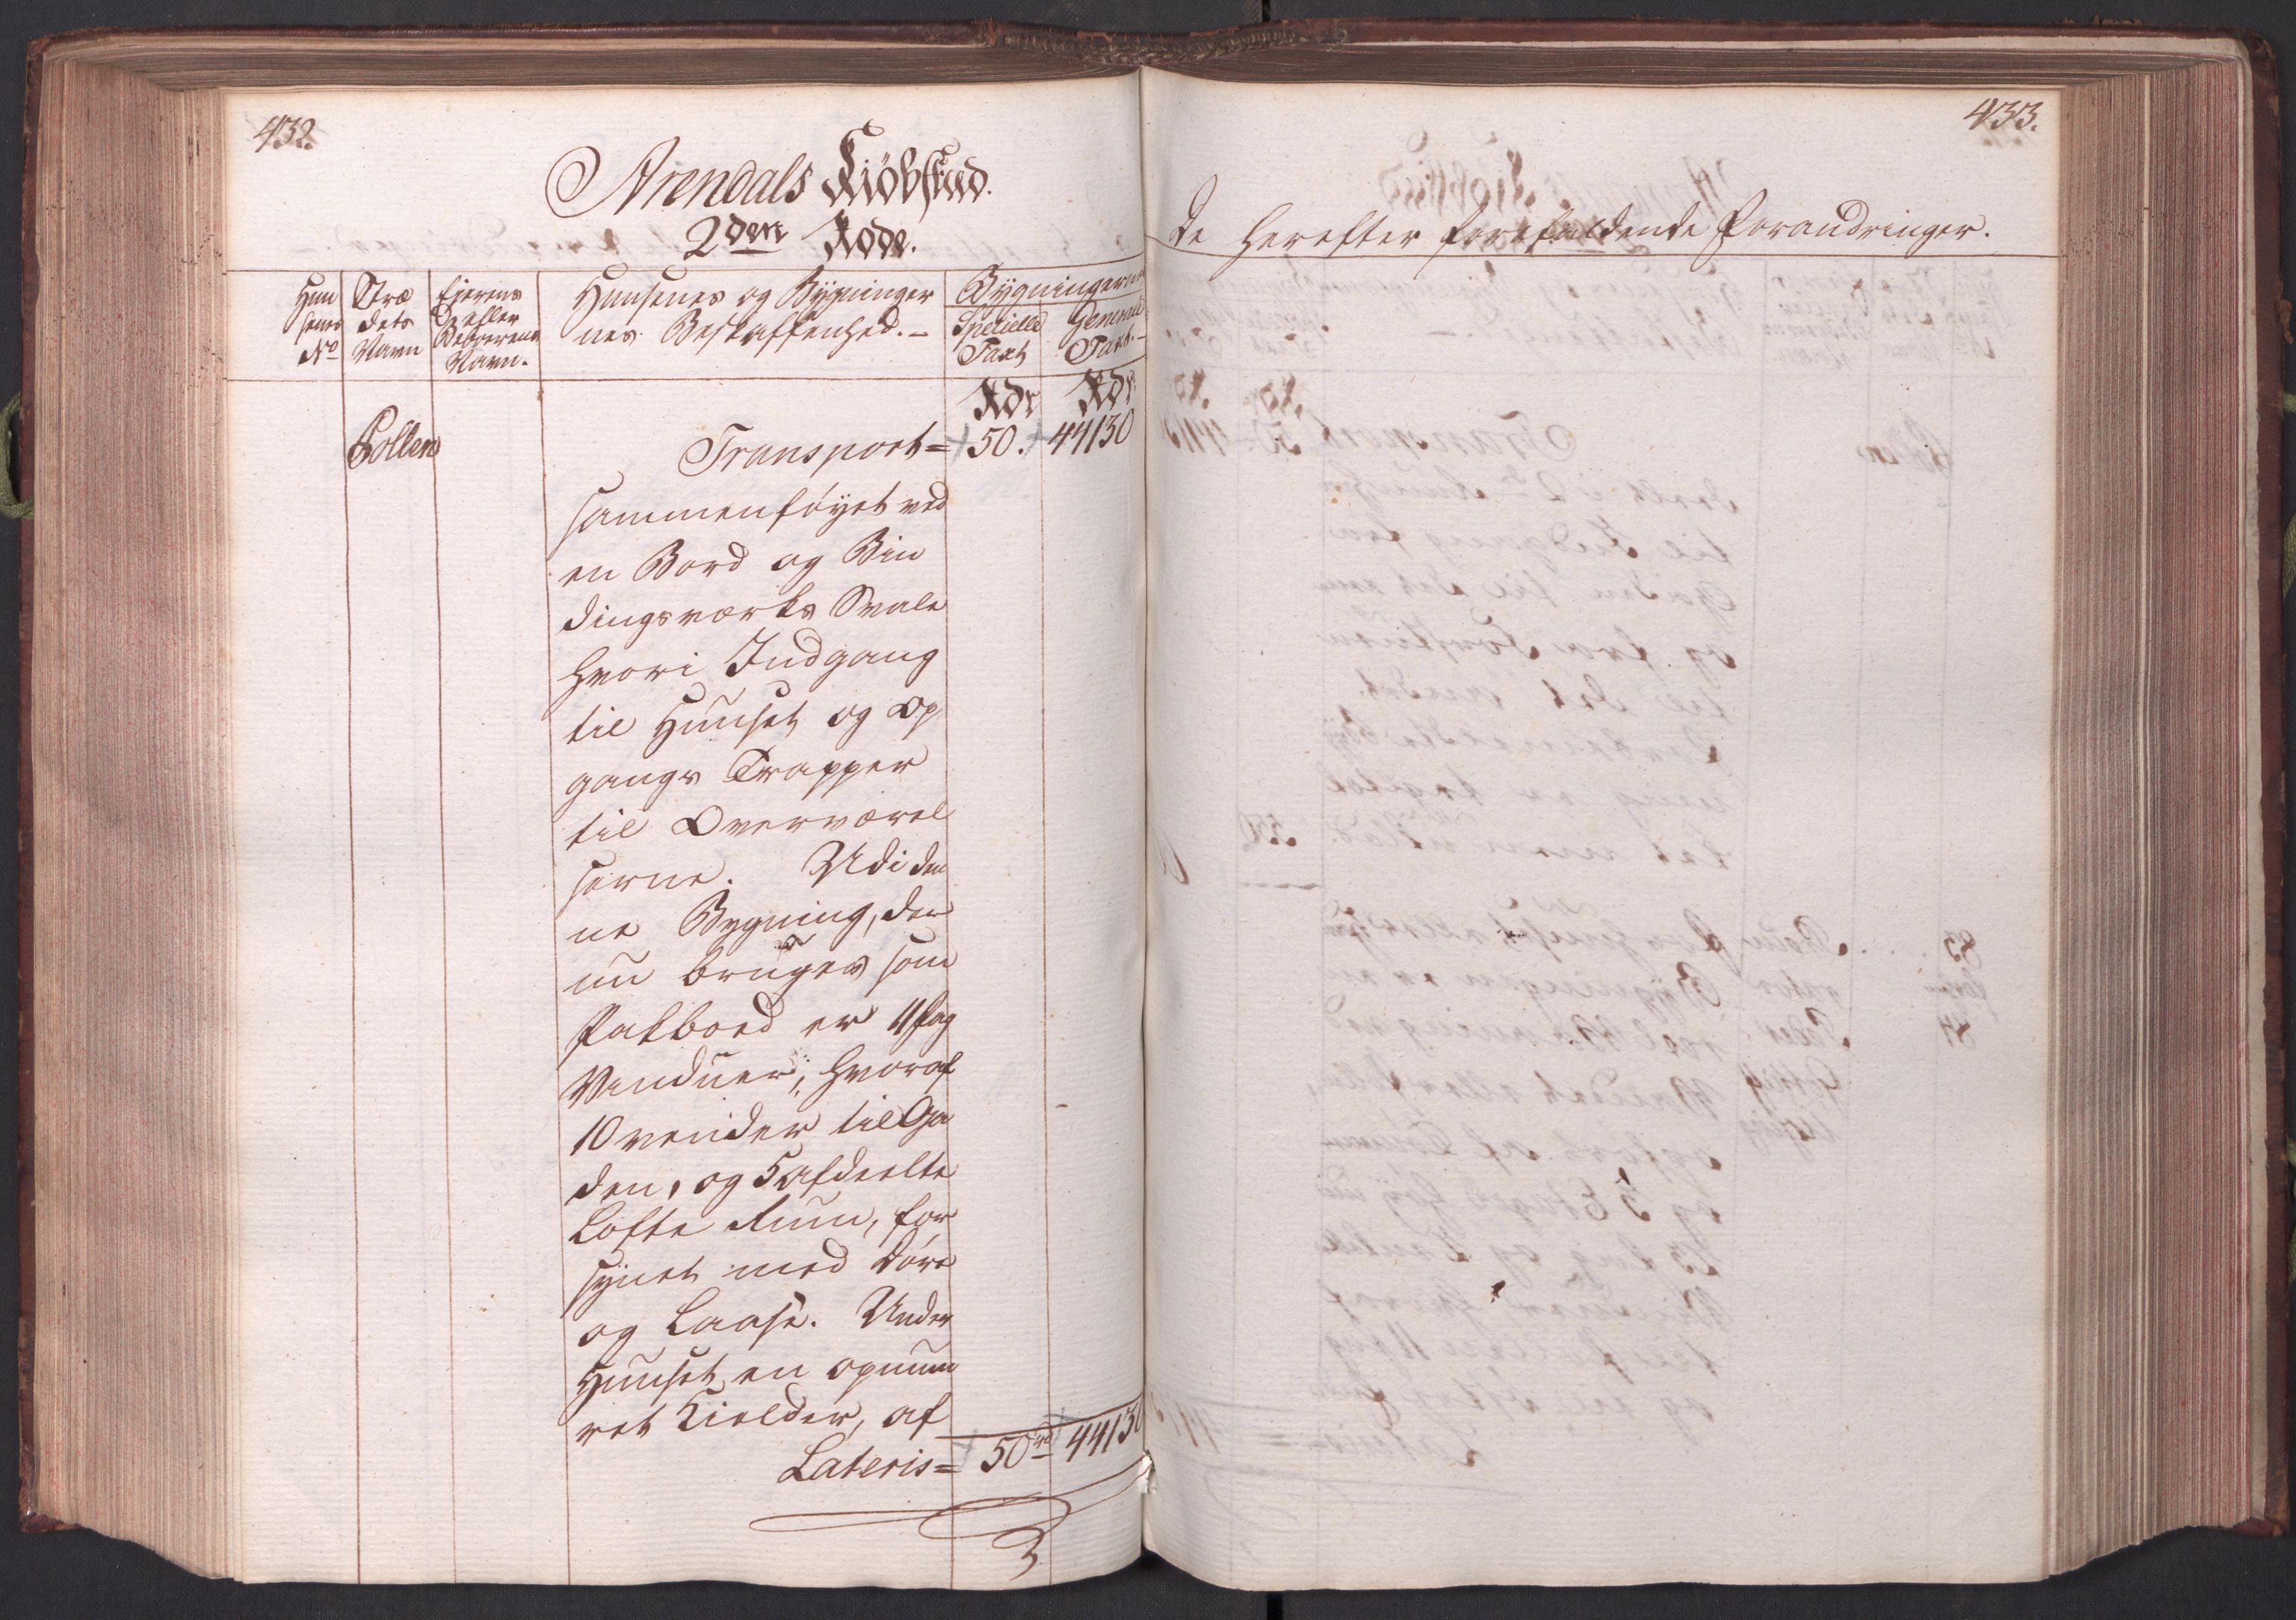 432.
Arendals Kiöbstæd.
2den Rode.
Huu
senes
No
Stræ
dets
Navn
Ejerens
eller
Beboerens
Navn.
Huusenes og Bÿgninger
nes Beskaffenhed. -
Bÿgningernes
Specielle
Taxt
Generale
Taxt. -
Rdr Rdr
Pollen
Transport = 50. 44130
sammenföyet ved
en Bord og Bin
dingsværks Svale
hvori Indgang
til Huuset og Op
gangs Trapper
til Overværel
serne. Udi den
ne Bygning, der
nu bruges som
Pakboed er 11 fag
Vinduer, hvoraf
10 vender til Ga
den, og 5 afdeelte
Lofte Rum, for
synet med Döre
og Laase. Under
Huuset en opmuu
ret Kielder, af
Lateris = 50 rd 44130
433.
de herefter forefaldende Forandringer.